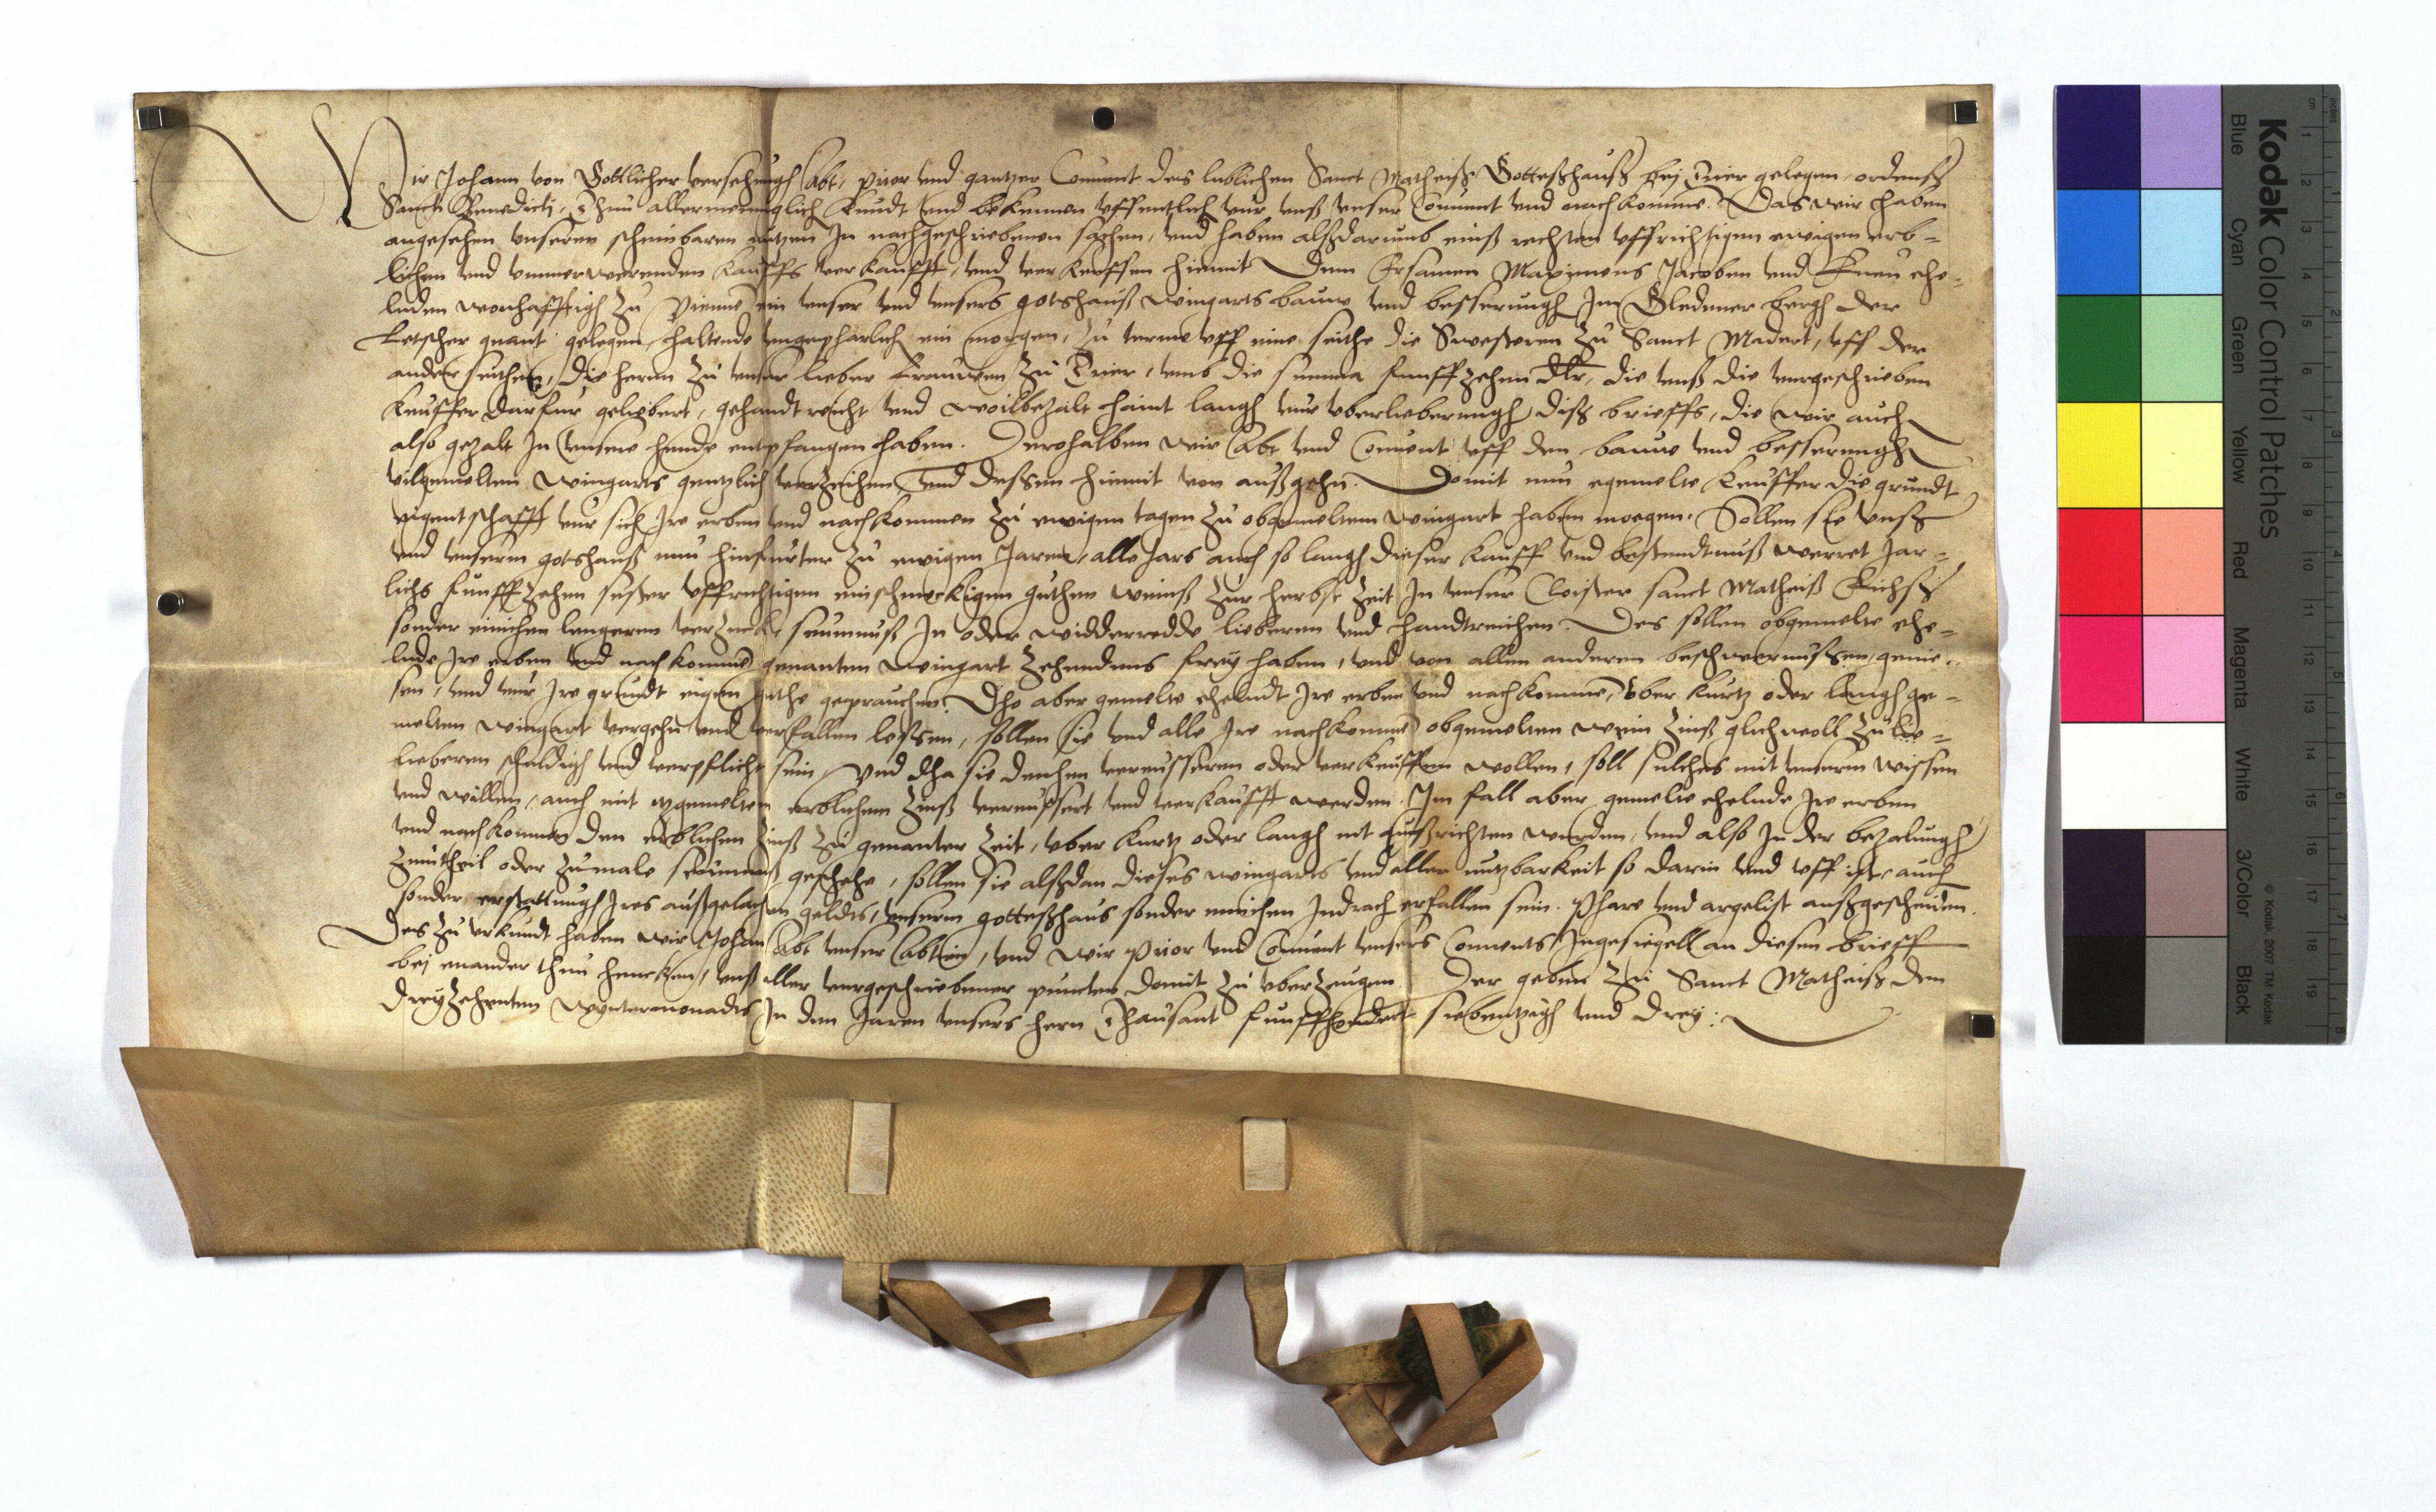 Wir Johann von Gottlicher versehungh Abt, prior und gantzer Convent des loblichen Sanct Matheiß Gotteßhauß bej Trier gelegen, ordenß
Sancti Benedicti, Thun allermenniglich kundt und bekennen offentlich vur unß unser Convent und nachkomme. Das wir haben
angesehen unseren scheinbaren nutzen In nachgeschriebenen sachen, und haben alßdarumb einß rechten uffrichtigen ewigen erb-
lichen und ummerwerenden kauffs verkaufft, und verkeuffen hiemit Dem Ersamen Maximens Jacoben und ehe-
luden wonhafftigh zu ein unser und unsers gotshauß wingarts bauw und besserungh Im bergh der
quant gelegen, haltende ungepharlich ein morgen, zu uff eine seithe die Swesteren zu Sanct Madert, uff der
ander seithen, die herrn zu unser lieber Frauwen zu Trier, umb die summa funffzehen dlr, die unß die vurgeschrieben
keuffer darfur geliebert, gehandtreicht und woilbezalt haint langh vur uberlieberungh diß brieffs, die wir auch
also gezalt In unsere hende entpfangen haben. Derohalben wir Abt und Convent uff den bauw und besserungh
vilgemelten wingarts gentzlich verzeihen, und dessen hiemit von außgehn. Domit nun egemelte keuffer die grundt
eigentschafft vur sich Ire erben und nachkommen zu ewigen tagen zu obgemeltem wingart haben moegen. Sollen sie unß
und unserm gotshauß nun hinfurter zu ewigen Jaren, alle Jars auch so langh dieser kauff und bestendtnuß werret Jar-
lichs funffzehen sester uffrichtigen einschmeckigen guthen weinß zur herbst zeit In unser Cloister sanct Matheiß
sonder einichen lengeren verzuck, seumnuß In oder widderredde lieberen und handtreichen. Des sollen obgemelte ehe-
lude Ire erben und nachkomme genanten wingart zehendens frey haben, und von allen anderen beschwernussen, genie-
sen, und vur Ire grundt eigen guthe geprauchen. Dho aber gemelte eheludt Ire erben und nachkomme, uber kurtz oder langh ge-
melten wingart vergehn und verfallen lessen, sollen sie und alle Ire nachkomme obgemelten wein zinß glichwoll zu lie-
lieberen schuldigh und verpflicht sein, Und dha sie denhen vereusseren oder verkeuffen wollen, soll sulches mit unserm wissen
und willen, auch mit itzgemeltem erblichem zinß vereussert und verkaufft werden. Im fall aber gemelte ehelude Ire erben
und nachkommen den erblichen zinß zu genanter zeit, uber kurtz oder langh nit außrichten wurden, und also In der bezalungh
zumtheil oder zumale seumnuß geschehe, sollen sie alßdan dieses wingarts und aller nutzbarkeit so darin und uff ist, auch
sonder erstattungh Ires außgelachten geldts, unserm gotteßhaus sonder einichen Indrach erfallen sein. Phare und argelist außgescheiden.
Des zu urkundt haben wir Johan Abt unser Abtien, und wir prior und Convent unsers Convents Ingesiegell an diesen brieff
bej einander thun hencken, unß aller vurgeschriebener puncten domit zu uberzeugen. Der geben zu Sanct Matheiß dem
dreyzehenten wyntermonadts In den Jaren unsers hern Thausant funffhondert siebentzigh und drey:
Kodak Color Control Patches
Blue Cyan Green Yellow Red Magenta White 3/Color Black
© Kodak, 2007 TM: Kodak
cm 1 2 3 4 5 6 7 8 9 10 11 12 13 14 15 16 17 18 19
inches 1 2 3 4 5 6 7 8